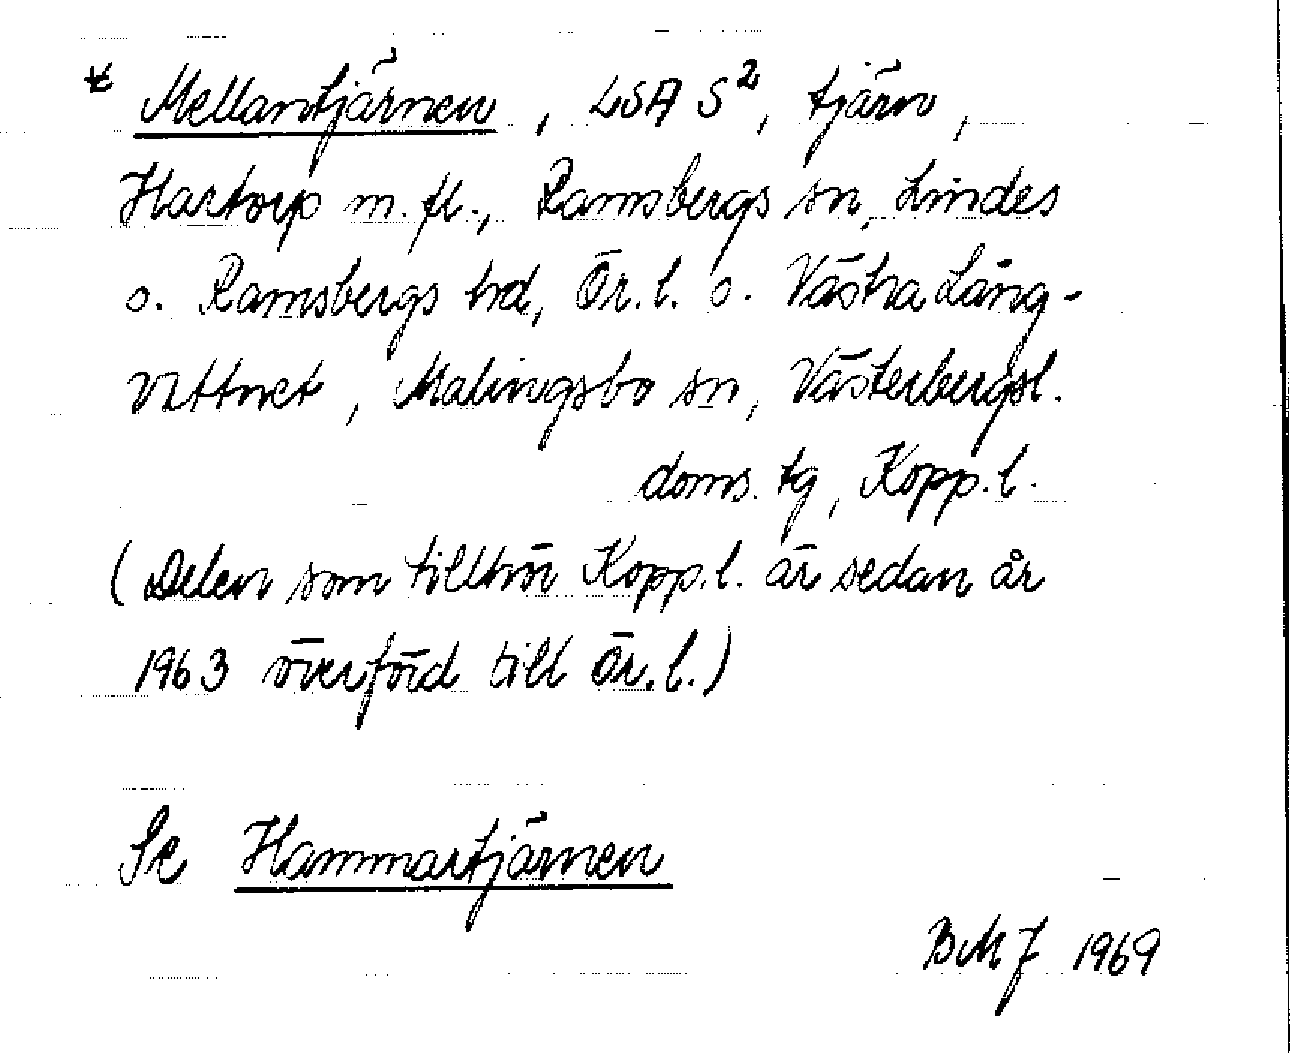 * Mellantjärnen, LSA S², tjärn,
Hartorp m. fl., Ramsbergs sn, Lindes
o. Ramsbergs hd, Ör. l. o. Västra Lång-
vattnet, Malingsbo sn, Västerbergsl.
doms. tg, Kopp. l.
(Delen som tillhör Kopp. l. är sedan år
1963 överförd till Ör. l.)
Se Hammartjärnen
BMJ 1969